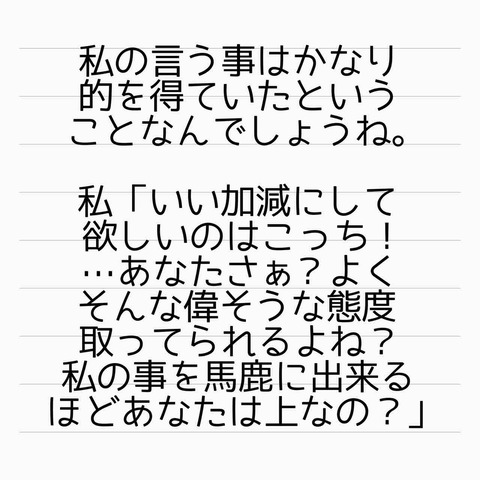 私の言う事はかなり
的を得ていたという
ことなんでしょうね。
私「いい加減にして
欲しいのはこっち！
…あなたさぁ？よく
そんな偉そうな態度
取ってられるよね？
私の事を馬鹿に出来る
ほどあなたは上なの？」